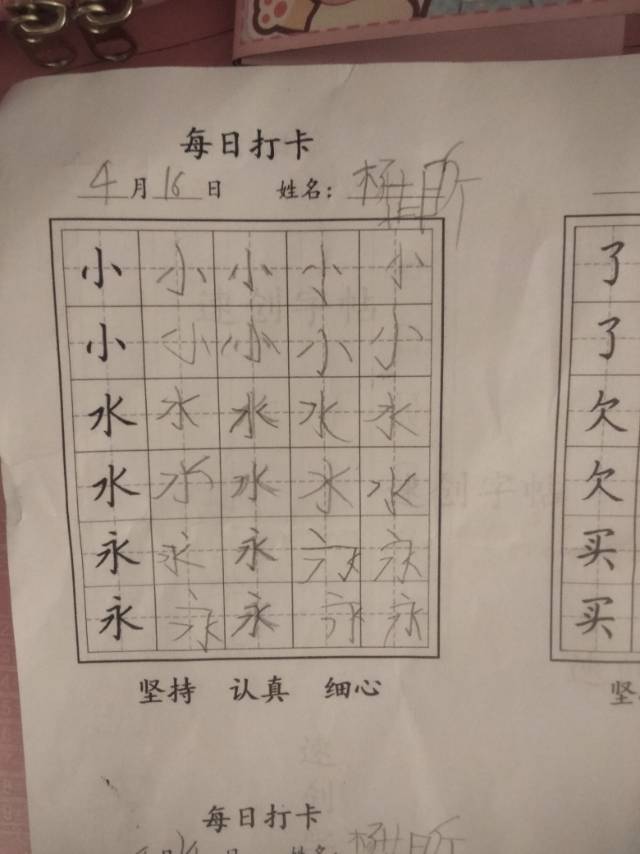 每日打卡
4月16日 姓名：杨
小小小小小
小小小小小
水水水水水
水水水水水
永永永永永
永永永永永
坚持 认真 细心
了
了
欠
欠
买
买
坚
每日打卡
月 日 姓名：杨